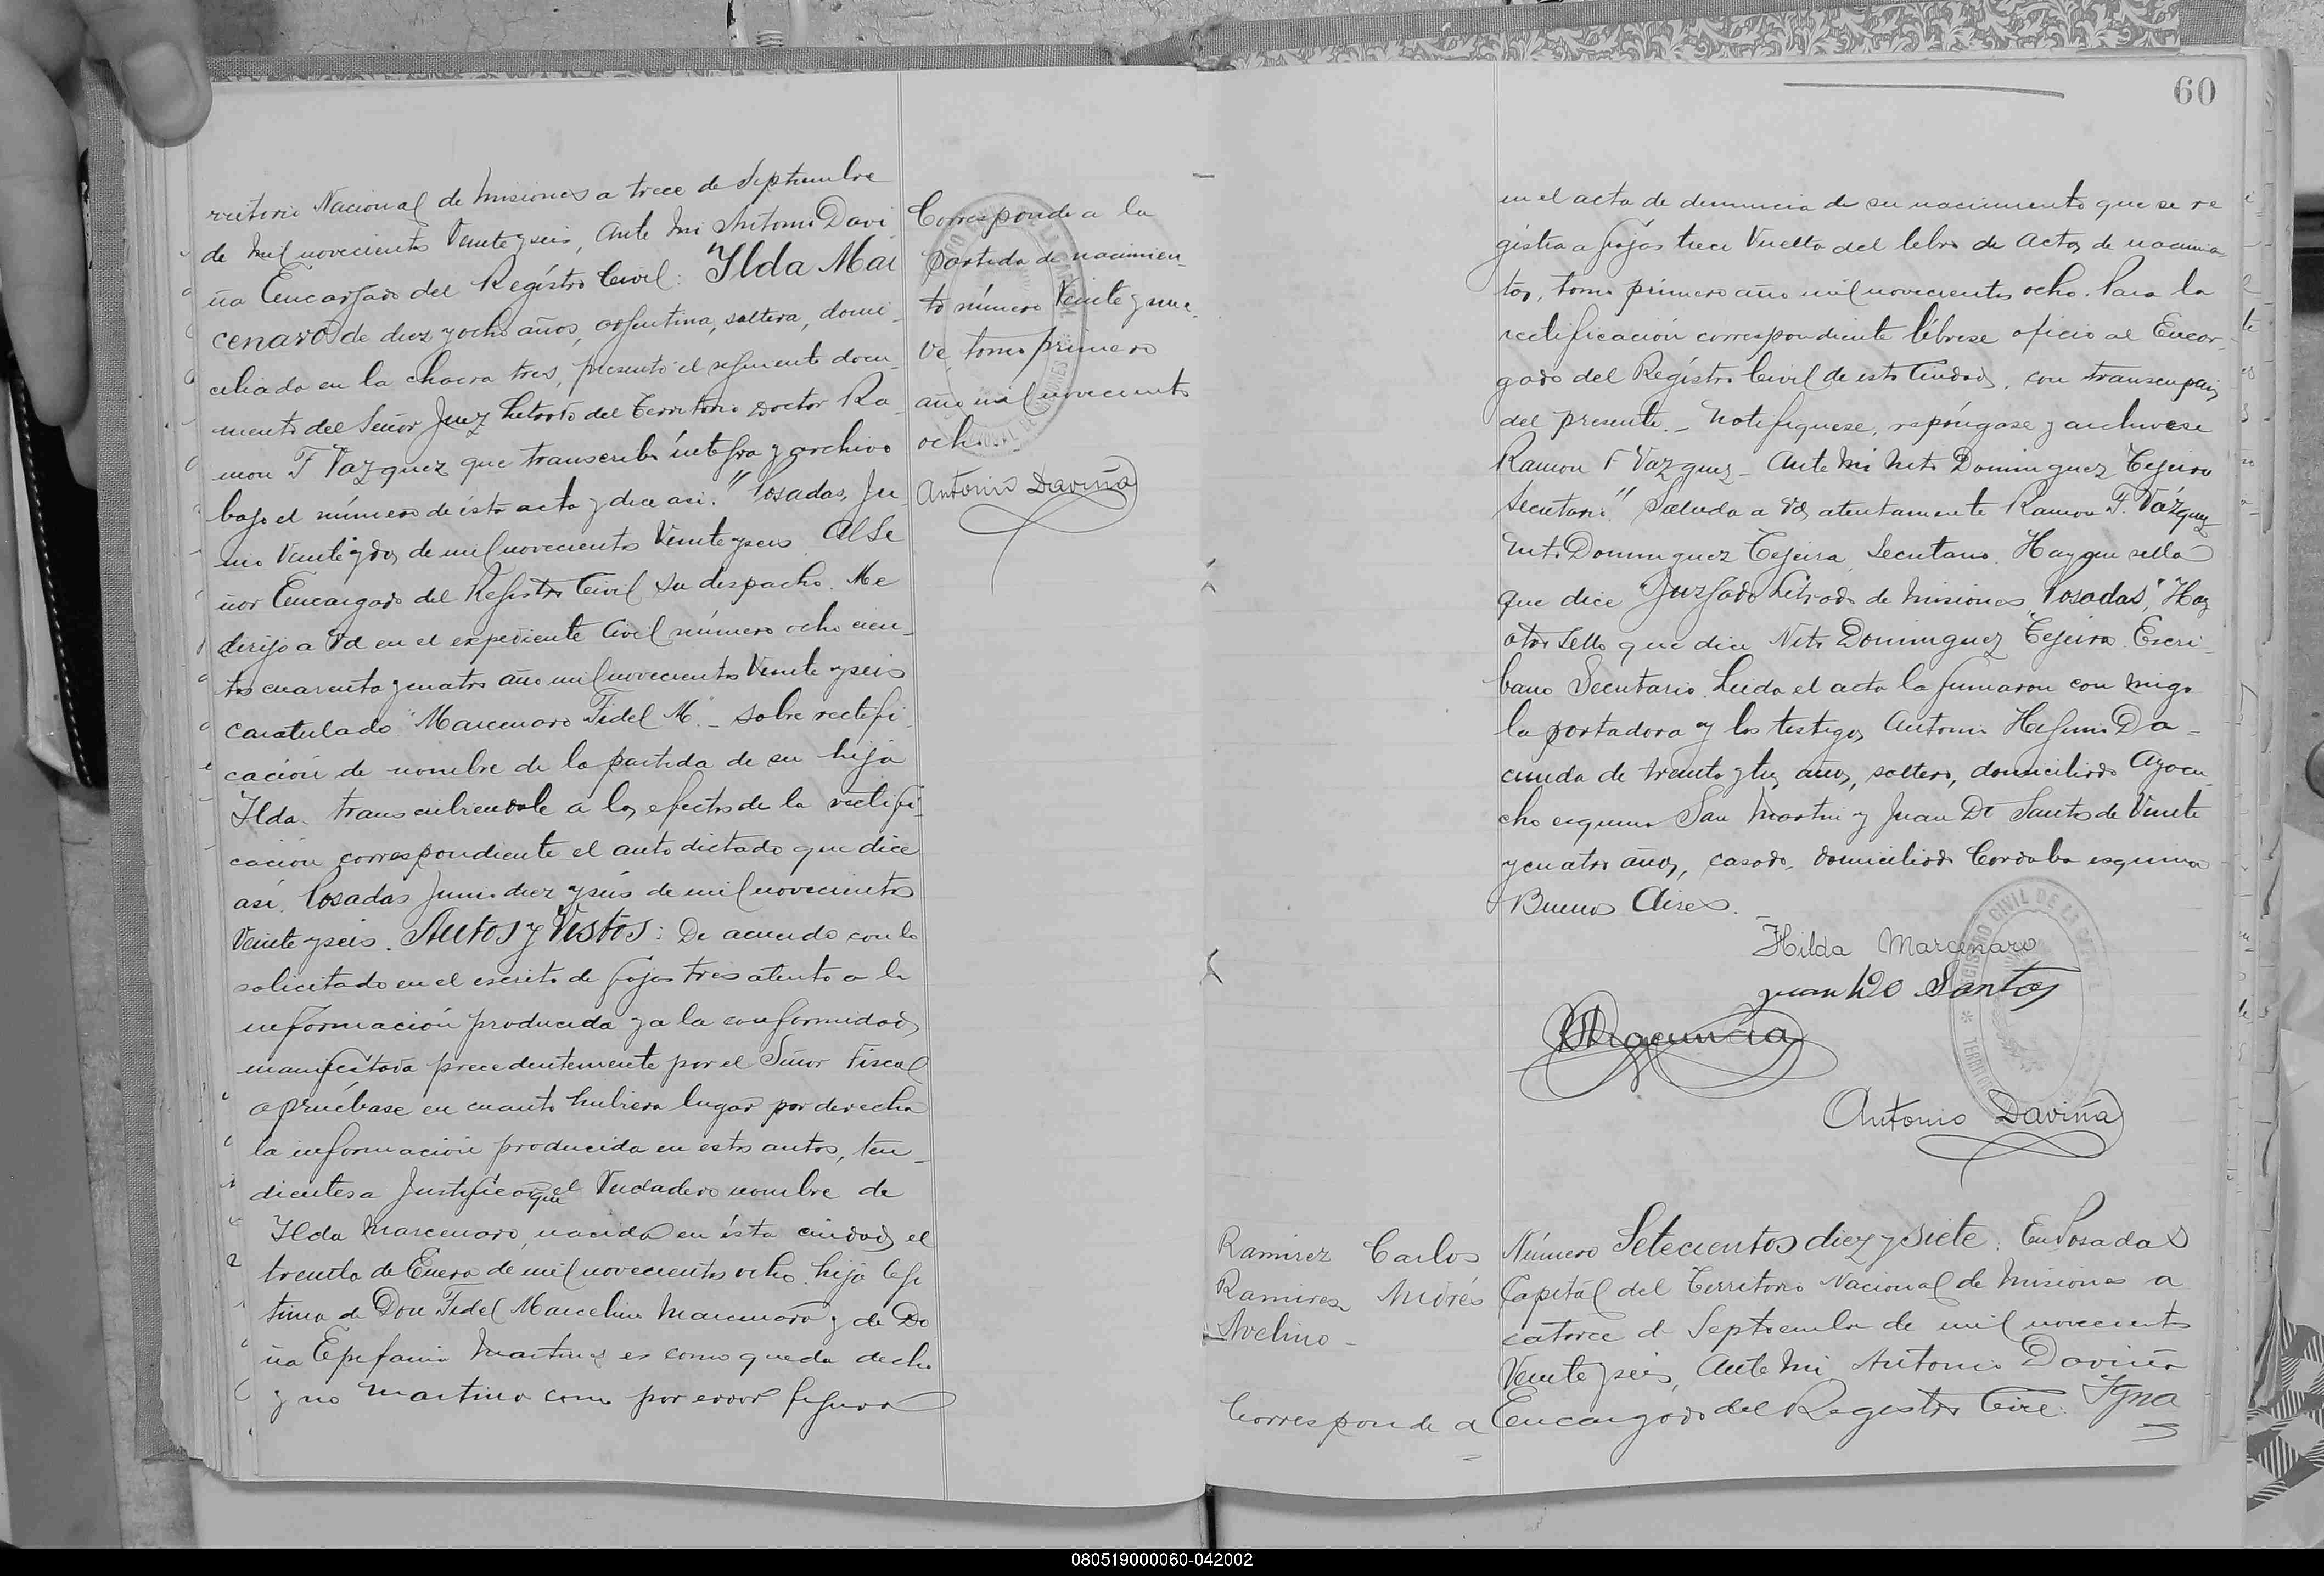 rritorio Nacional de Misiones a trece de Septiembre
de mil novecientos Veinte y seis, Ante Mi Antonio Davi
ña Encargado del Registro Civil: Ilda Mar
cenaro de diez y ocho años, argentina, soltera, domi-
ciliada en la chacra tres, presentó el siguiente docu-
mento del Señor Juez Letrado del Territorio Doctor Ra-
mon F Vazquez que transcribo íntegra y archivo
bajo el número de ésta acta y dice asi: "Posadas, Ju-
nio Veinte y dos de mil novecientos Veinte y seis Al Se
ñor Encargado del Registro Civil Su despacho. Me
dirijo a Vd en el expediente Civil número ocho cien-
tos cuarenta y cuatro año mil novecientos Veinte y seis
caratulado "Marcenaro Fidel M. - Sobre rectifi-
cación de nombre de la partida de su hija
Ilda. transcribiendole a los efectos de la rectifi-
cación correspondiente el auto dictado que dice
así. Posadas Junio diez y seis de mil novecientos
Veinte y seis. Autos y Vistos: De acuerdo con lo
solicitado en el escrito de fojas tres atento a la
información producida y a la conformidad
manifestada precedentemente por el Señor Fiscal
apruébase en cuanto hubiera lugar por derecho
la información producida en estos autos, ten-
dientes a Justificar que el Verdadero nombre de
Ilda Marcenaro, nacida en ésta ciudad el
treinta de Enero de mil novecientos ocho hija legi
tima de Don Fidel Marcelino Marcenaro y de Do
ña Epifania Martinez es como queda dicho
y no Martina como por error figura
Corresponde a la
partida de nacimien-
to número Veinte y nue-
ve, tomo primero
año mil novecientos
ocho
Antonio Daviña
60
en el acta de denuncia de su nacimiento que se re
gistra a fojas trece Vuelta del libro de Actas de nacimien-
tos, tomo primero año mil novecientos ocho. Para la
rectificación correspondiente líbrese oficio al Encar-
gado del Registro Civil de esta Ciudad, con transcripción
del presente. - Notifíquese, repóngase y archivese
Ramon F Vazquez - Ante Mi Neto Dominguez Tejeiro
Secretario." Saluda a Vd atentamente Ramon F. Vázquez
Neto Dominguez Tejeira Secretario. Hay un sello
que dice "Juzgado Letrado de Misiones, Posadas", Hay
otro Sello que dice Neto Dominguez Tejeira Escri-
bano Secretario. Leida el acta la firmaron con migo
la portadora y los testigos Antonio Da-
cunda de treinta y tres años, soltero, domiciliado Ayacu-
cho esquina San Martin y Juan Do Santos de Veinte
y cuatro años, casado, domiciliado Cordoba esquina
Buenos Aires.
Hilda Marcenaro
Juan Do Santos
Antonio Daviña
Ramirez Carlos
Ramirez Andrés
Avelino -
Corresponde a
Número Setecientos diez y siete: En Posadas
Capital del Territorio Nacional de Misiones a
catorce de Septiembre de mil novecientos
Veinte y seis, Ante Mi Antonio Daviña
Encargado del Registro Civil: Igna
080519000060-042002